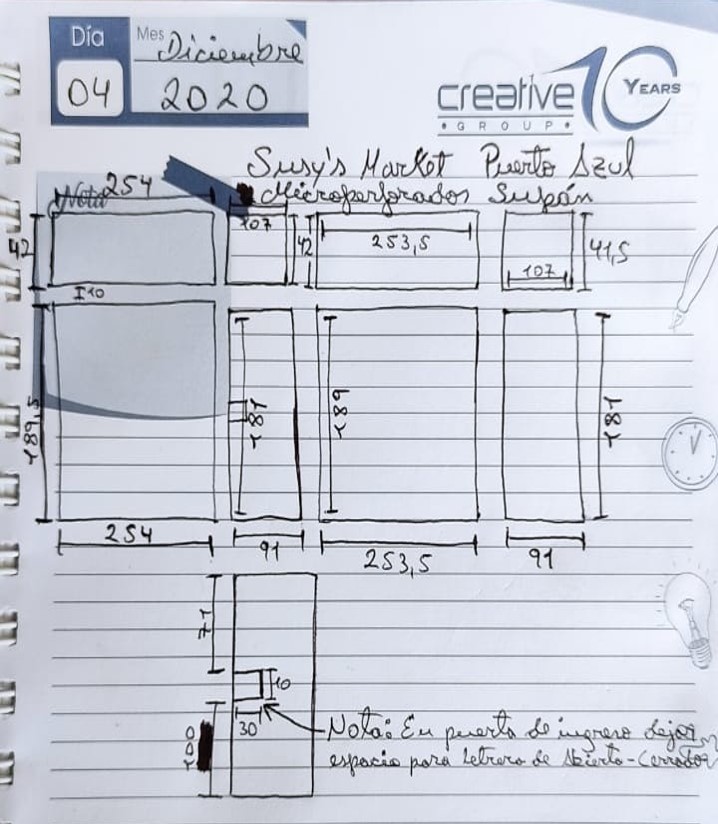 Día
Mes
Diciembre
04
2020
creative 10 YEARS
• GROUP •
Susy's Market Puerto Azul
Microperforados Supán
Nota
254
42
107
42
253,5
107
41,5
I10
189,5
181
189
181
254
91
253,5
91
71
10
30
100
Nota: En puerta de ingreso dejar
espacio para letrero de Abierto-Cerrado